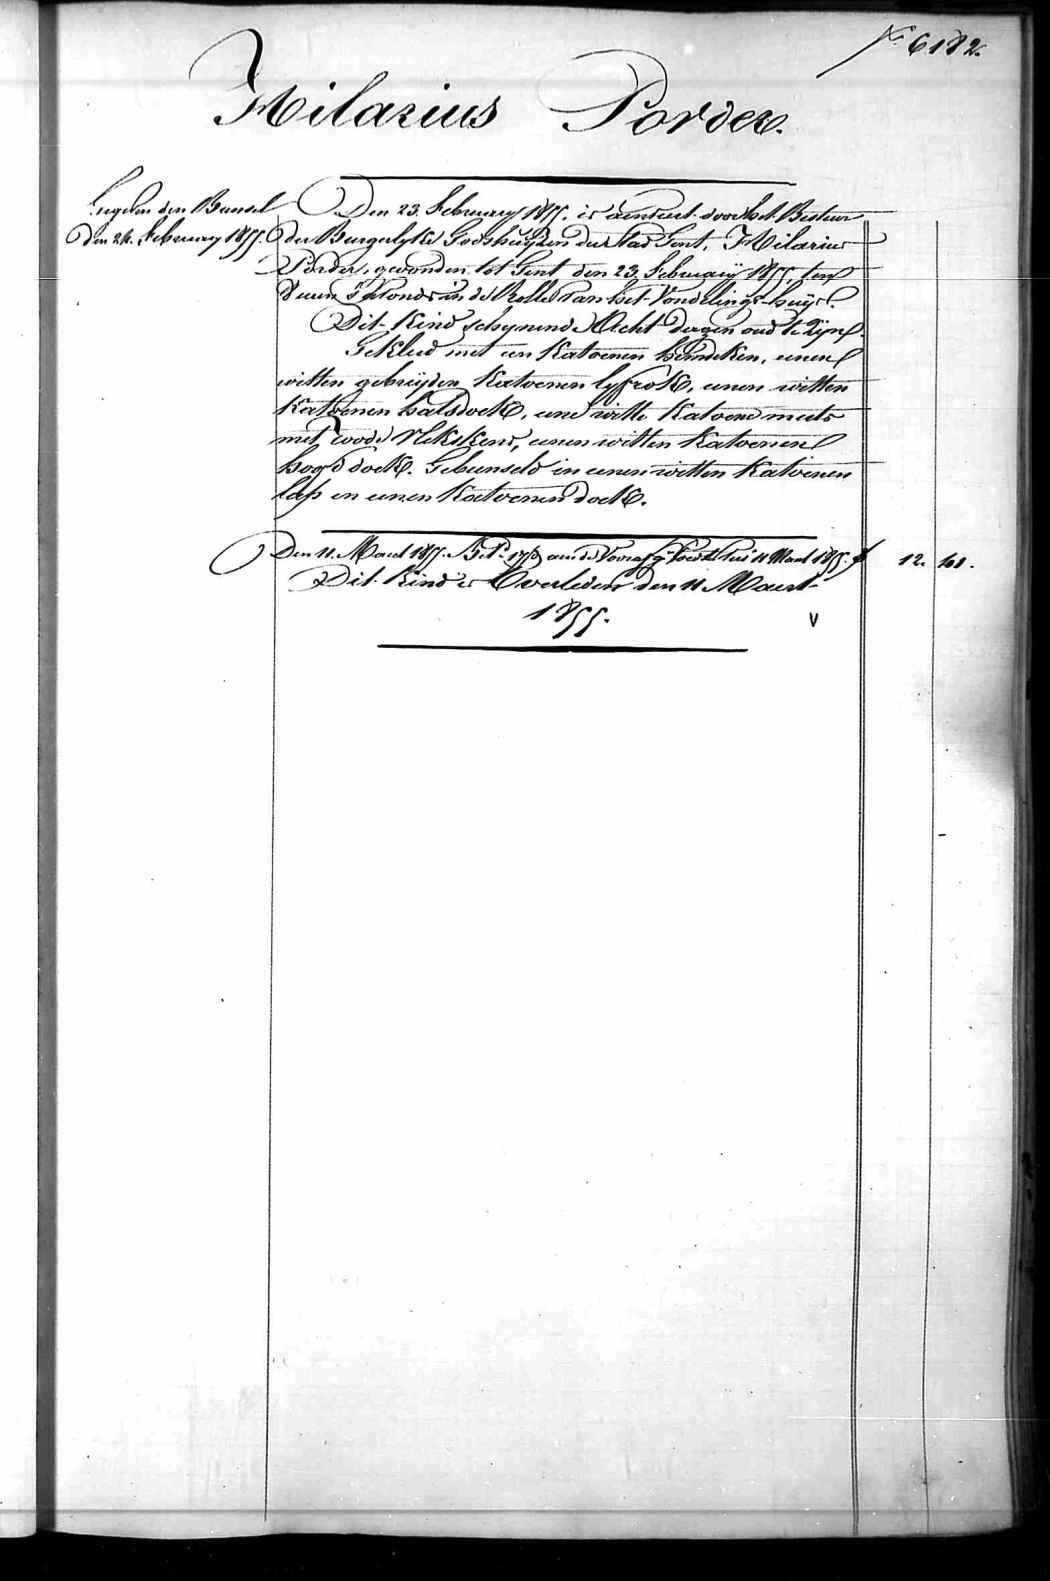 No 6182.
Hilarius Porder.
Gegeven den Bunsel
Den 24. February 1855.
Den 23. February 1855. is aenveert door het Bestuur
der Burgerlyke Godshuyzen der Stad Gent, Hilarius
Porder, gevonden tot Gent den 23. February 1855, ten
8 uren 's avonds in de Rolle van het Vondelings-huys.
Dit Kind schynende Acht dagen oud te Zyn.
Gekleed met een Katoenen hemdeken, eenen
witten gebreyden Katoenen lyfrok, eenen witten
Katoenen halsdoek, eene witte Katoene muts
met roode Vlekskens, eenen witten Katoenen
hoofddoek. Gebunseld in eenen witten Katoenen
lap en eenen Katoenen doek.
Den 11. Maert 1855. aen de 11 Maert 1855. f 12.
Dit Kind is Overleden den 11 Maert
1855.
V